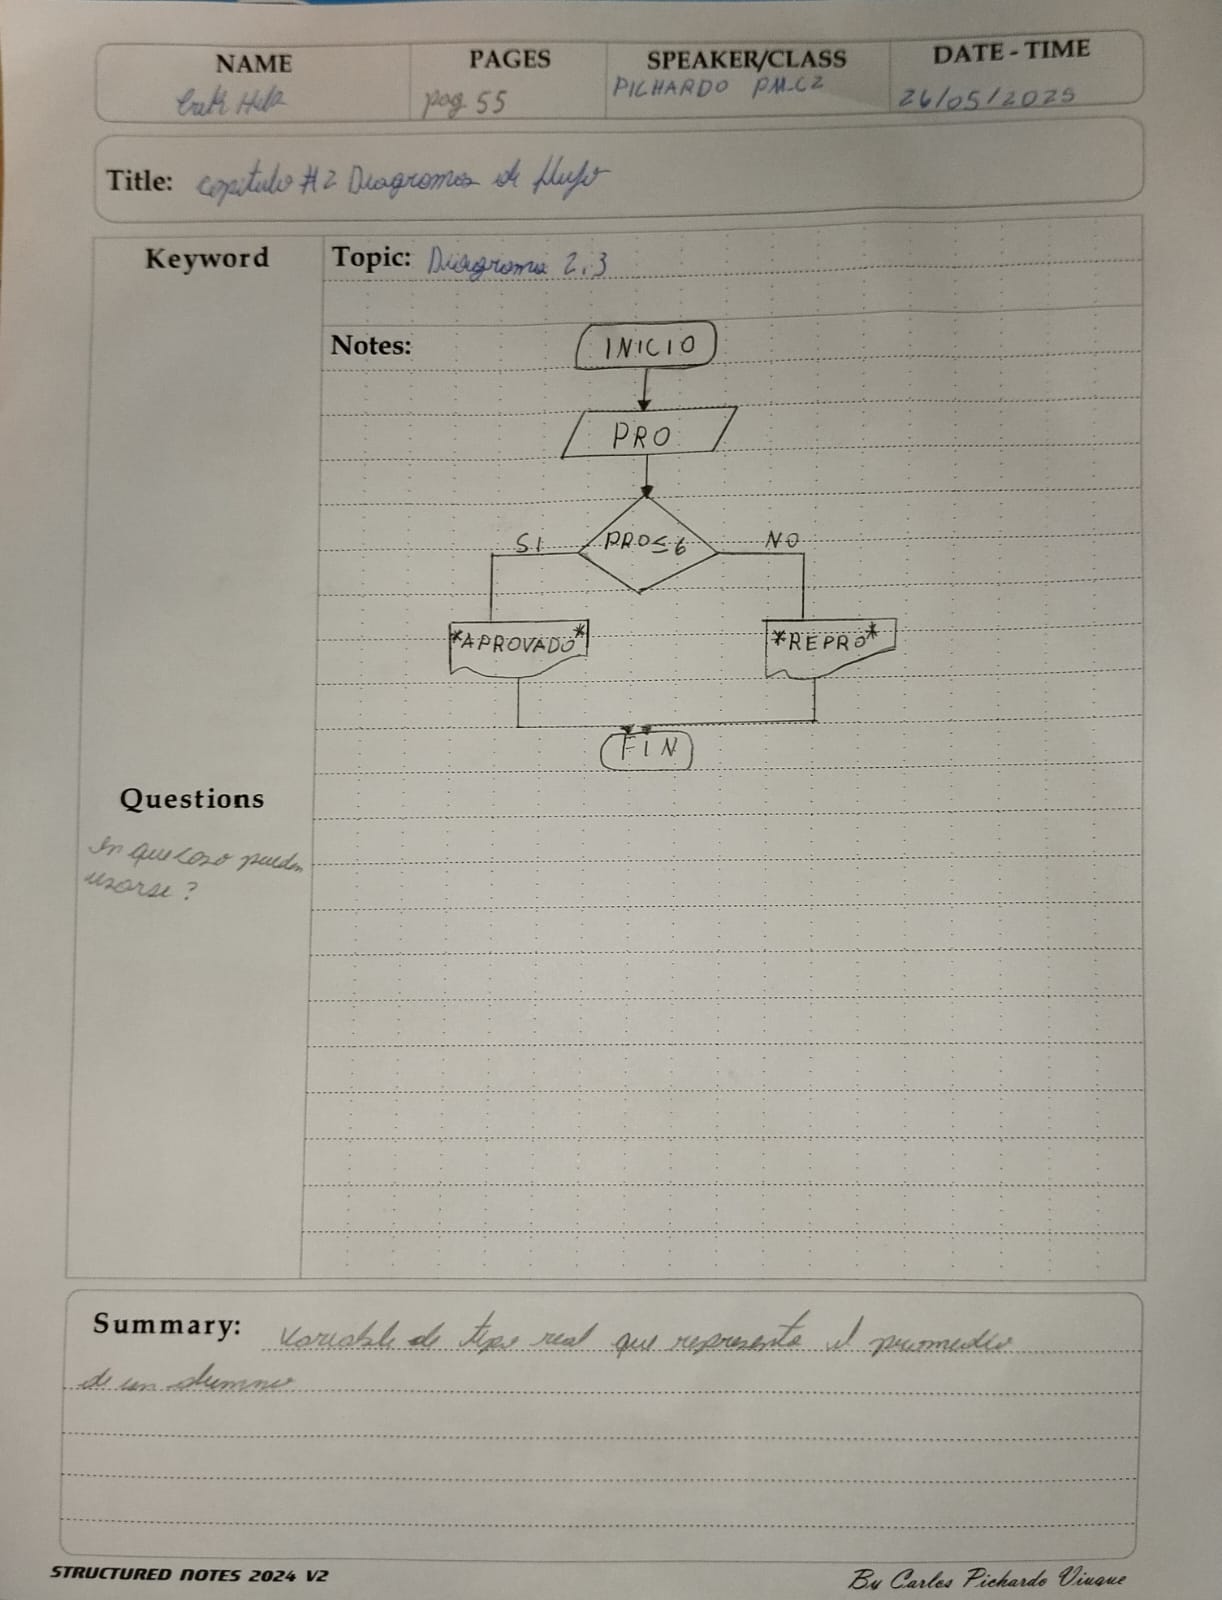 NAME
PAGES
SPEAKER/CLASS
DATE - TIME
pag 55
PICHARDO PM-C2
26/05/2025
Title: Capitulo #2 Diagramas de flujo
Keyword
Topic: Diagrama 2.3
Notes:
INICIO
PRO
SI
PRO≤6
NO
*APROVADO*
*REPRO*
FIN
Questions
En que caso pueden
usarse?
Summary: Variable de tipo real que representa el promedio
de un alumno
STRUCTURED NOTES 2024 V2
By Carlos Pichardo Viuque